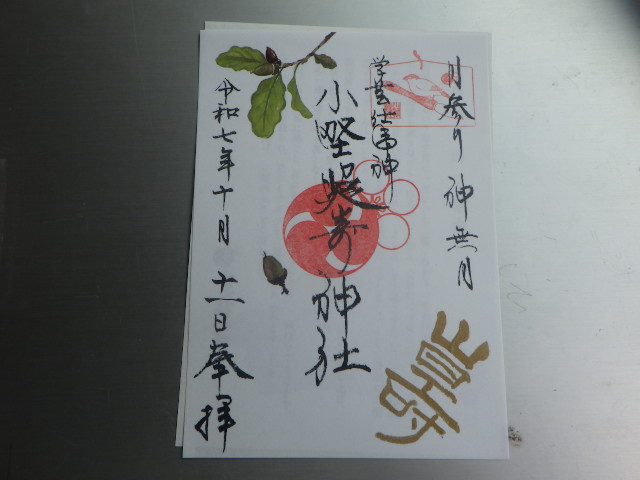 月参り 神無月
学芸仕事神
小野照崎神社
令和七年十月 十一日 奉拝
壽